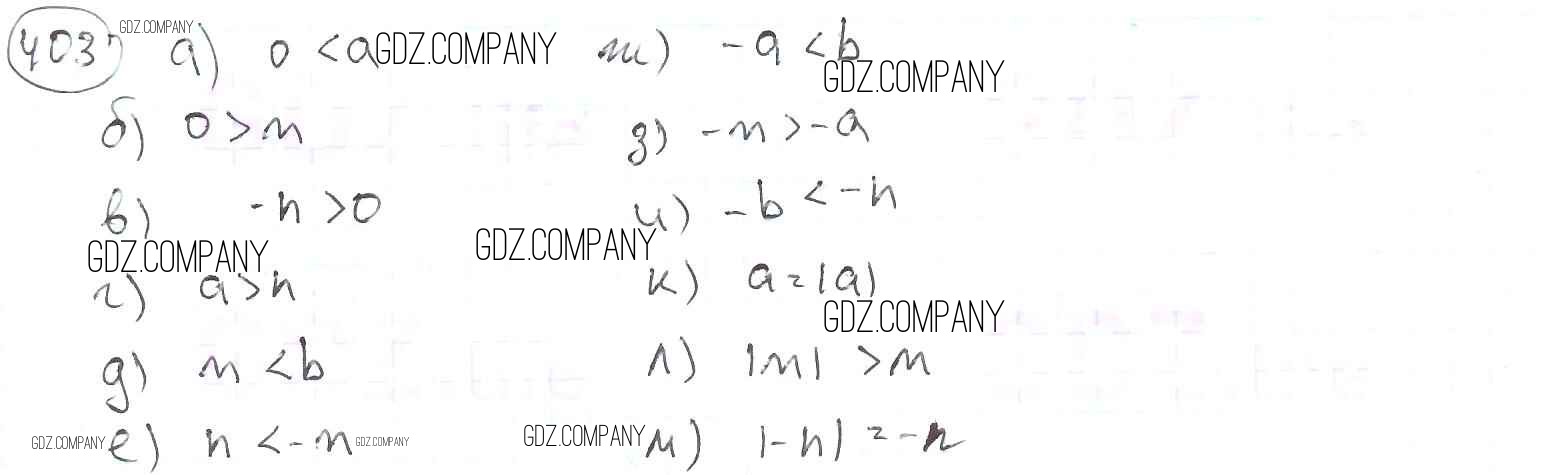 403 GDZ.COMPANY а) 0 < a GDZ.COMPANY ж) -a < b
GDZ.COMPANY
б) 0 > m з) -m > -a
в) -n > 0 и) -b < -n
GDZ.COMPANY GDZ.COMPANY
г) a > n к) a = |a|
GDZ.COMPANY
д) m < b л) |m| > m
GDZ.COMPANY е) n < -m GDZ.COMPANY GDZ.COMPANY м) |-n| = -n